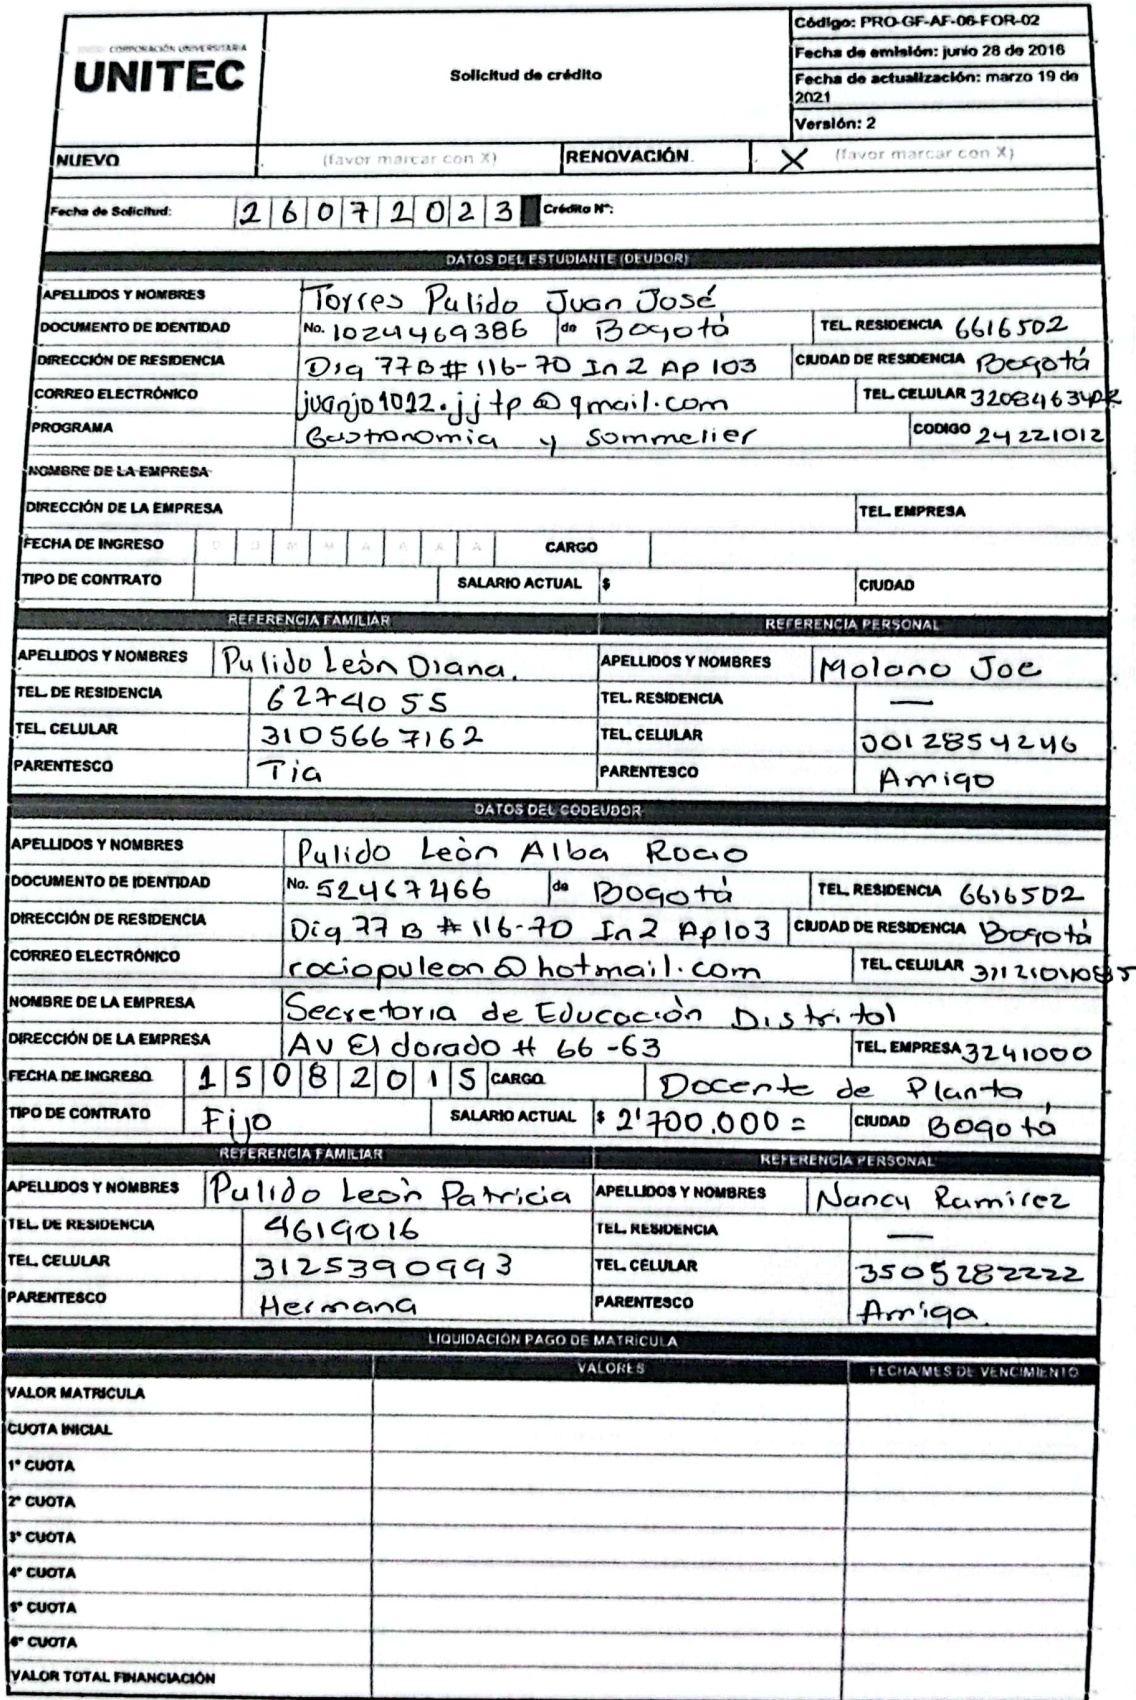 CORPORACIÓN UNIVERSITARIA
UNITEC
Solicitud de crédito
Código: PRO-GF-AF-06-FOR-02
Fecha de emisión: junio 28 de 2016
Fecha de actualización: marzo 19 de
2021
Versión: 2
NUEVO (favor marcar con X) RENOVACIÓN X (favor marcar con X)
Fecha de Solicitud: 2 6 0 7 2 0 2 3 Crédito N°:
DATOS DEL ESTUDIANTE (DEUDOR)
APELLIDOS Y NOMBRES Torres Pulido Juan José
DOCUMENTO DE IDENTIDAD No. 1024469386 de Bogotá TEL. RESIDENCIA 6616502
DIRECCIÓN DE RESIDENCIA Dig 77B # 116-70 In 2 Ap 103 CIUDAD DE RESIDENCIA Bogotá
CORREO ELECTRÓNICO juanjo1012.jjtp@gmail.com TEL. CELULAR
PROGRAMA Gastronomia y Sommelier CODIGO 24221012
NOMBRE DE LA EMPRESA
DIRECCIÓN DE LA EMPRESA TEL. EMPRESA
FECHA DE INGRESO D D M M A A A A CARGO
TIPO DE CONTRATO SALARIO ACTUAL $ CIUDAD
REFERENCIA FAMILIAR REFERENCIA PERSONAL
APELLIDOS Y NOMBRES Pulido Leòn Diana. APELLIDOS Y NOMBRES Molano Joe
TEL. DE RESIDENCIA 6274055 TEL. RESIDENCIA —
TEL. CELULAR 3105667162 TEL. CELULAR 3012854246
PARENTESCO Tia PARENTESCO Amigo
DATOS DEL CODEUDOR
APELLIDOS Y NOMBRES Pulido Leòn Alba Rocio
DOCUMENTO DE IDENTIDAD No. 52467466 de Bogotá TEL. RESIDENCIA 6616502
DIRECCIÓN DE RESIDENCIA Dig 77 B # 116-70 In 2 Ap 103 CIUDAD DE RESIDENCIA Bogotá
CORREO ELECTRÓNICO rociopuleon@hotmail.com TEL. CELULAR
NOMBRE DE LA EMPRESA Secretoria de Educación Distrital
DIRECCIÓN DE LA EMPRESA AV El dorado # 66-63 TEL. EMPRESA 3241000
FECHA DE INGRESO 1 5 0 8 2 0 1 5 CARGO Docente de Planta
TIPO DE CONTRATO Fijo SALARIO ACTUAL $ 2'700.000= CIUDAD Bogotá
REFERENCIA FAMILIAR REFERENCIA PERSONAL
APELLIDOS Y NOMBRES Pulido Leòn Patricia APELLIDOS Y NOMBRES Nancy Ramirez
TEL. DE RESIDENCIA 4619016 TEL. RESIDENCIA —
TEL. CELULAR 3125390993 TEL. CELULAR 3505282222
PARENTESCO Hermana PARENTESCO Amiga
LIQUIDACIÓN PAGO DE MATRÍCULA
VALORES FECHA/MES DE VENCIMIENTO
VALOR MATRÍCULA
CUOTA INICIAL
1° CUOTA
2° CUOTA
3° CUOTA
4° CUOTA
5° CUOTA
6° CUOTA
VALOR TOTAL FINANCIACIÓN